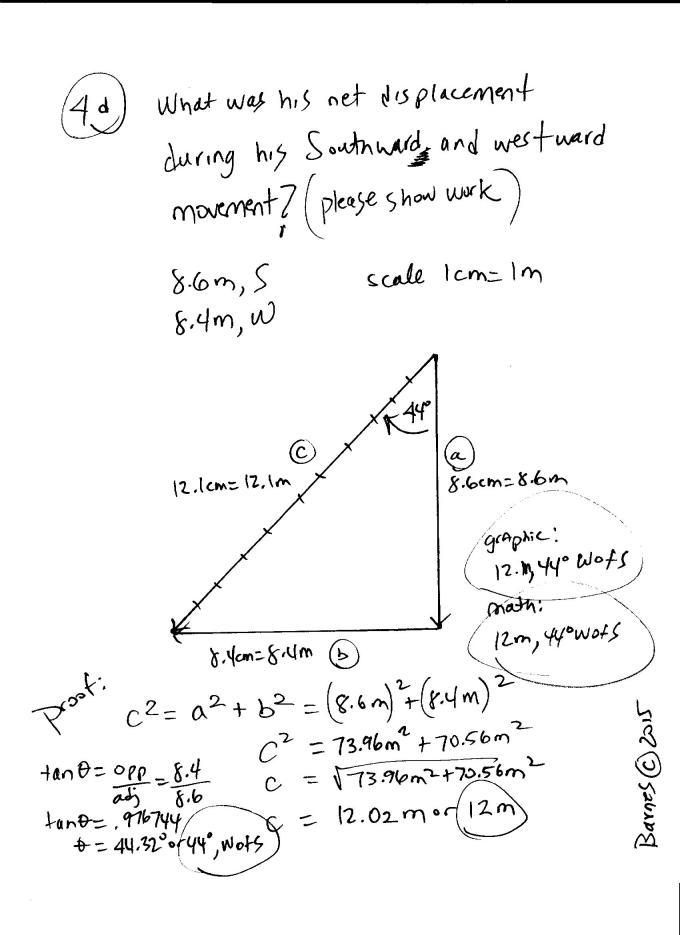 4d What was his net displacement
during his Southward, and westward
movement? (please show work)
8.6m, S scale 1cm=1m
8.4m, W
44°
c
a
12.1cm=12.1m
8.6cm=8.6m
graphic:
12.1m, 44° WofS
math:
12m, 44° WofS
8.4cm=8.4m b
proof:
c² = a² + b² = (8.6m)² + (8.4m)²
c² = 73.96m² + 70.56m²
tanθ = opp/adj = 8.4/8.6
c = √73.96m²+70.56m²
tanθ = .976744
c = 12.02m or 12m
θ = 44.32° or 44°, WofS
Barnes © 2015